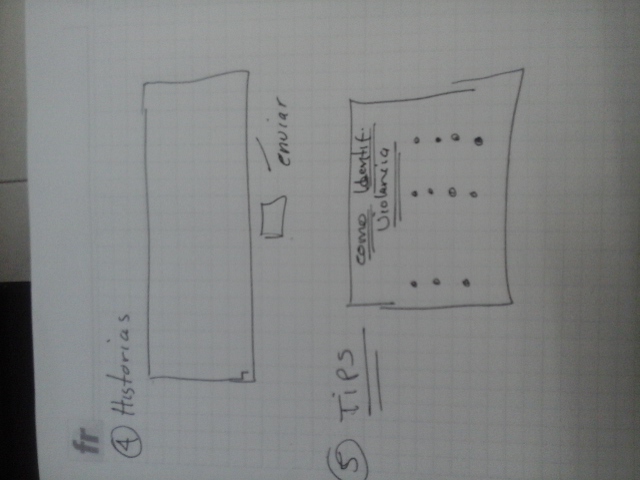 fr
4 Historias
enviar
5 TIPS
como Identif.
Violencia